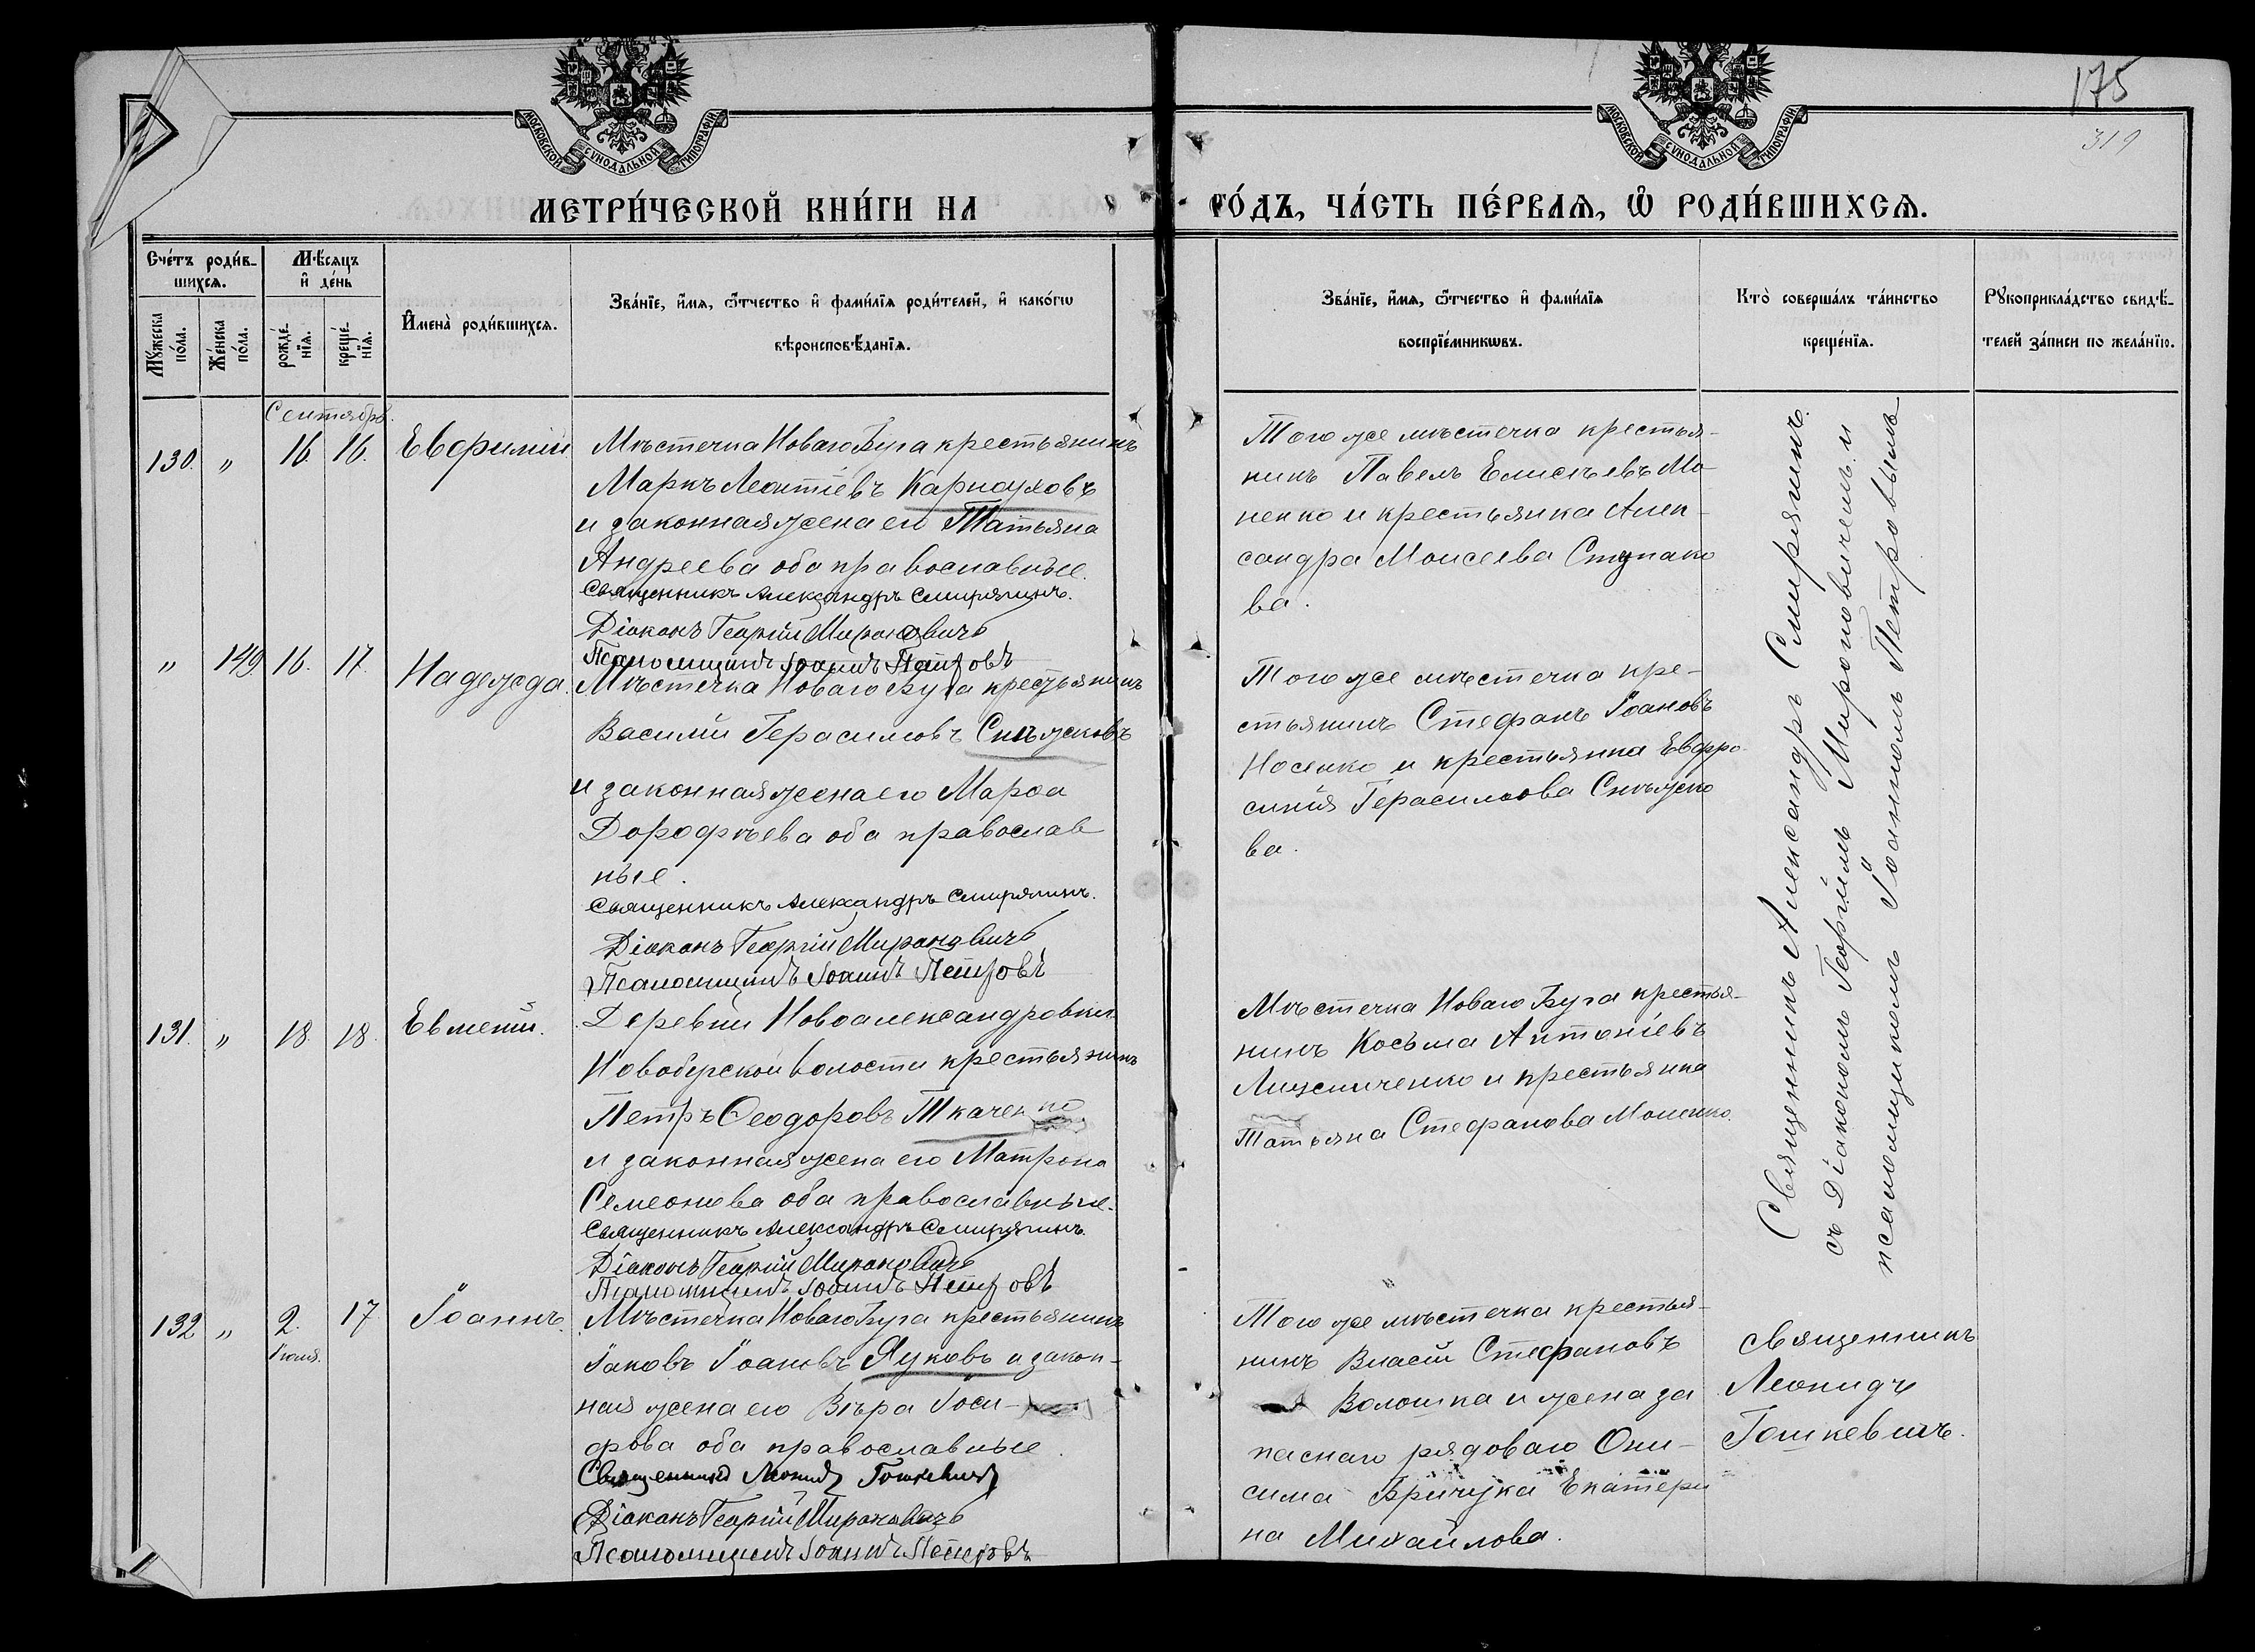 175
319
МОСКОВСКОЙ СѴНОДАЛЬНОЙ ТИПОГРАФІИ
МОСКОВСКОЙ СѴНОДАЛЬНОЙ ТИПОГРАФІИ
МЕТРИ́ЧЕСКОЙ КНИ́ГИ НА ГО́ДЪ, ЧА́СТЬ ПЕ́РВАЯ, Ѡ҆ РОДИ́ВШИХСЯ.
Сче́тъ роди́в-
шихся.
Мꙋ́жеска по́ла.
Же́нска по́ла.
Мѣ́сяцъ
и҆ де́нь
рожде́-
нїя.
креще́-
нїя.
И҆мена̀ роди́вшихся.
Зва́нїе, и҆́мя, ѻ҆́тчество и҆ фами́лїя роди́телей, и҆ како́гѡ
вѣроисповѣ́данїя.
Зва́нїе, и҆́мя, ѻ҆́тчество и҆ фами́лїя
воспрїе́мникѡвъ.
Кто̀ соверша́лъ та́инство
креще́нїя.
Рꙋкоприкла́дство свидѣ́-
телей за́писи по жела́нїю.
Сентябрь.
130. „ 16. 16. Евфимій
Мѣстечка Новаго Буга крестьянинъ
Маркъ Леонтіевъ Карнауховъ
и законная жена его Татьяна
Андреева оба православные.
Священникъ Александръ Смирягинъ.
Діаконъ Георгій Мироновичъ
Псаломщикъ Іоаннъ Петровъ
Того же мѣстечка крестья-
нинъ Павелъ Елисѣевъ Мо-
ненко и крестьянка Алек-
сандра Моисеева Ступако
ва.
„ 149 16. 17. Надежда.
Мѣстечка Новаго Буга крестьянинъ
Василій Герасимовъ Снѣжковъ
и законная жена его Марѳа
Дорофѣева оба православ
ные.
Священникъ Александръ Смирягинъ.
Діаконъ Георгій Мироновичъ
Псаломщикъ Іоаннъ Петровъ
Того же мѣстечка кре-
стьянинъ Стефанъ Іоановъ
Носенко и крестьянка Евфро
синія Герасимова Снѣжко
ва.
131. „ 18. 18. Евменій.
Деревни Новоалександровки
Новобугской волости крестьянинъ
Петръ Ѳеодоровъ Ткаченко
и законная жена его Матрона
Семеонова оба православные.
Священникъ Александръ Смирягинъ.
Діаконъ Георгій Мироновичъ
Псаломщикъ Іоаннъ Петровъ
Мѣстечка Новаго Буга крестья-
нинъ Косьма Антоніевъ
и крестьянка
Татьяна Стефанова Моненко.
Священникъ Александръ Смирягинъ.
съ Діакономъ Георгіемъ Мироновичемъ и
псаломщикомъ Іоанномъ Петровымъ
132 „ 2. 17 Іоаннъ.
Іюля.
Мѣстечка Новаго Буга крестьянинъ
Іаковъ Іоановъ Яуковъ и закон-
ная жена его Вѣра Іоси-
фова оба православные.
Священникъ Леонидъ Гошкевичъ
Діаконъ Георгій Мироновичъ
Псаломщикъ Іоаннъ Петровъ
Того же мѣстечка крестья-
нинъ Власій Стефановъ
Волошка и жена за
паснаго рядоваго Они-
сима Бричука Екатери
на Михайлова.
Священникъ
Леонидъ
Гошкевичъ.